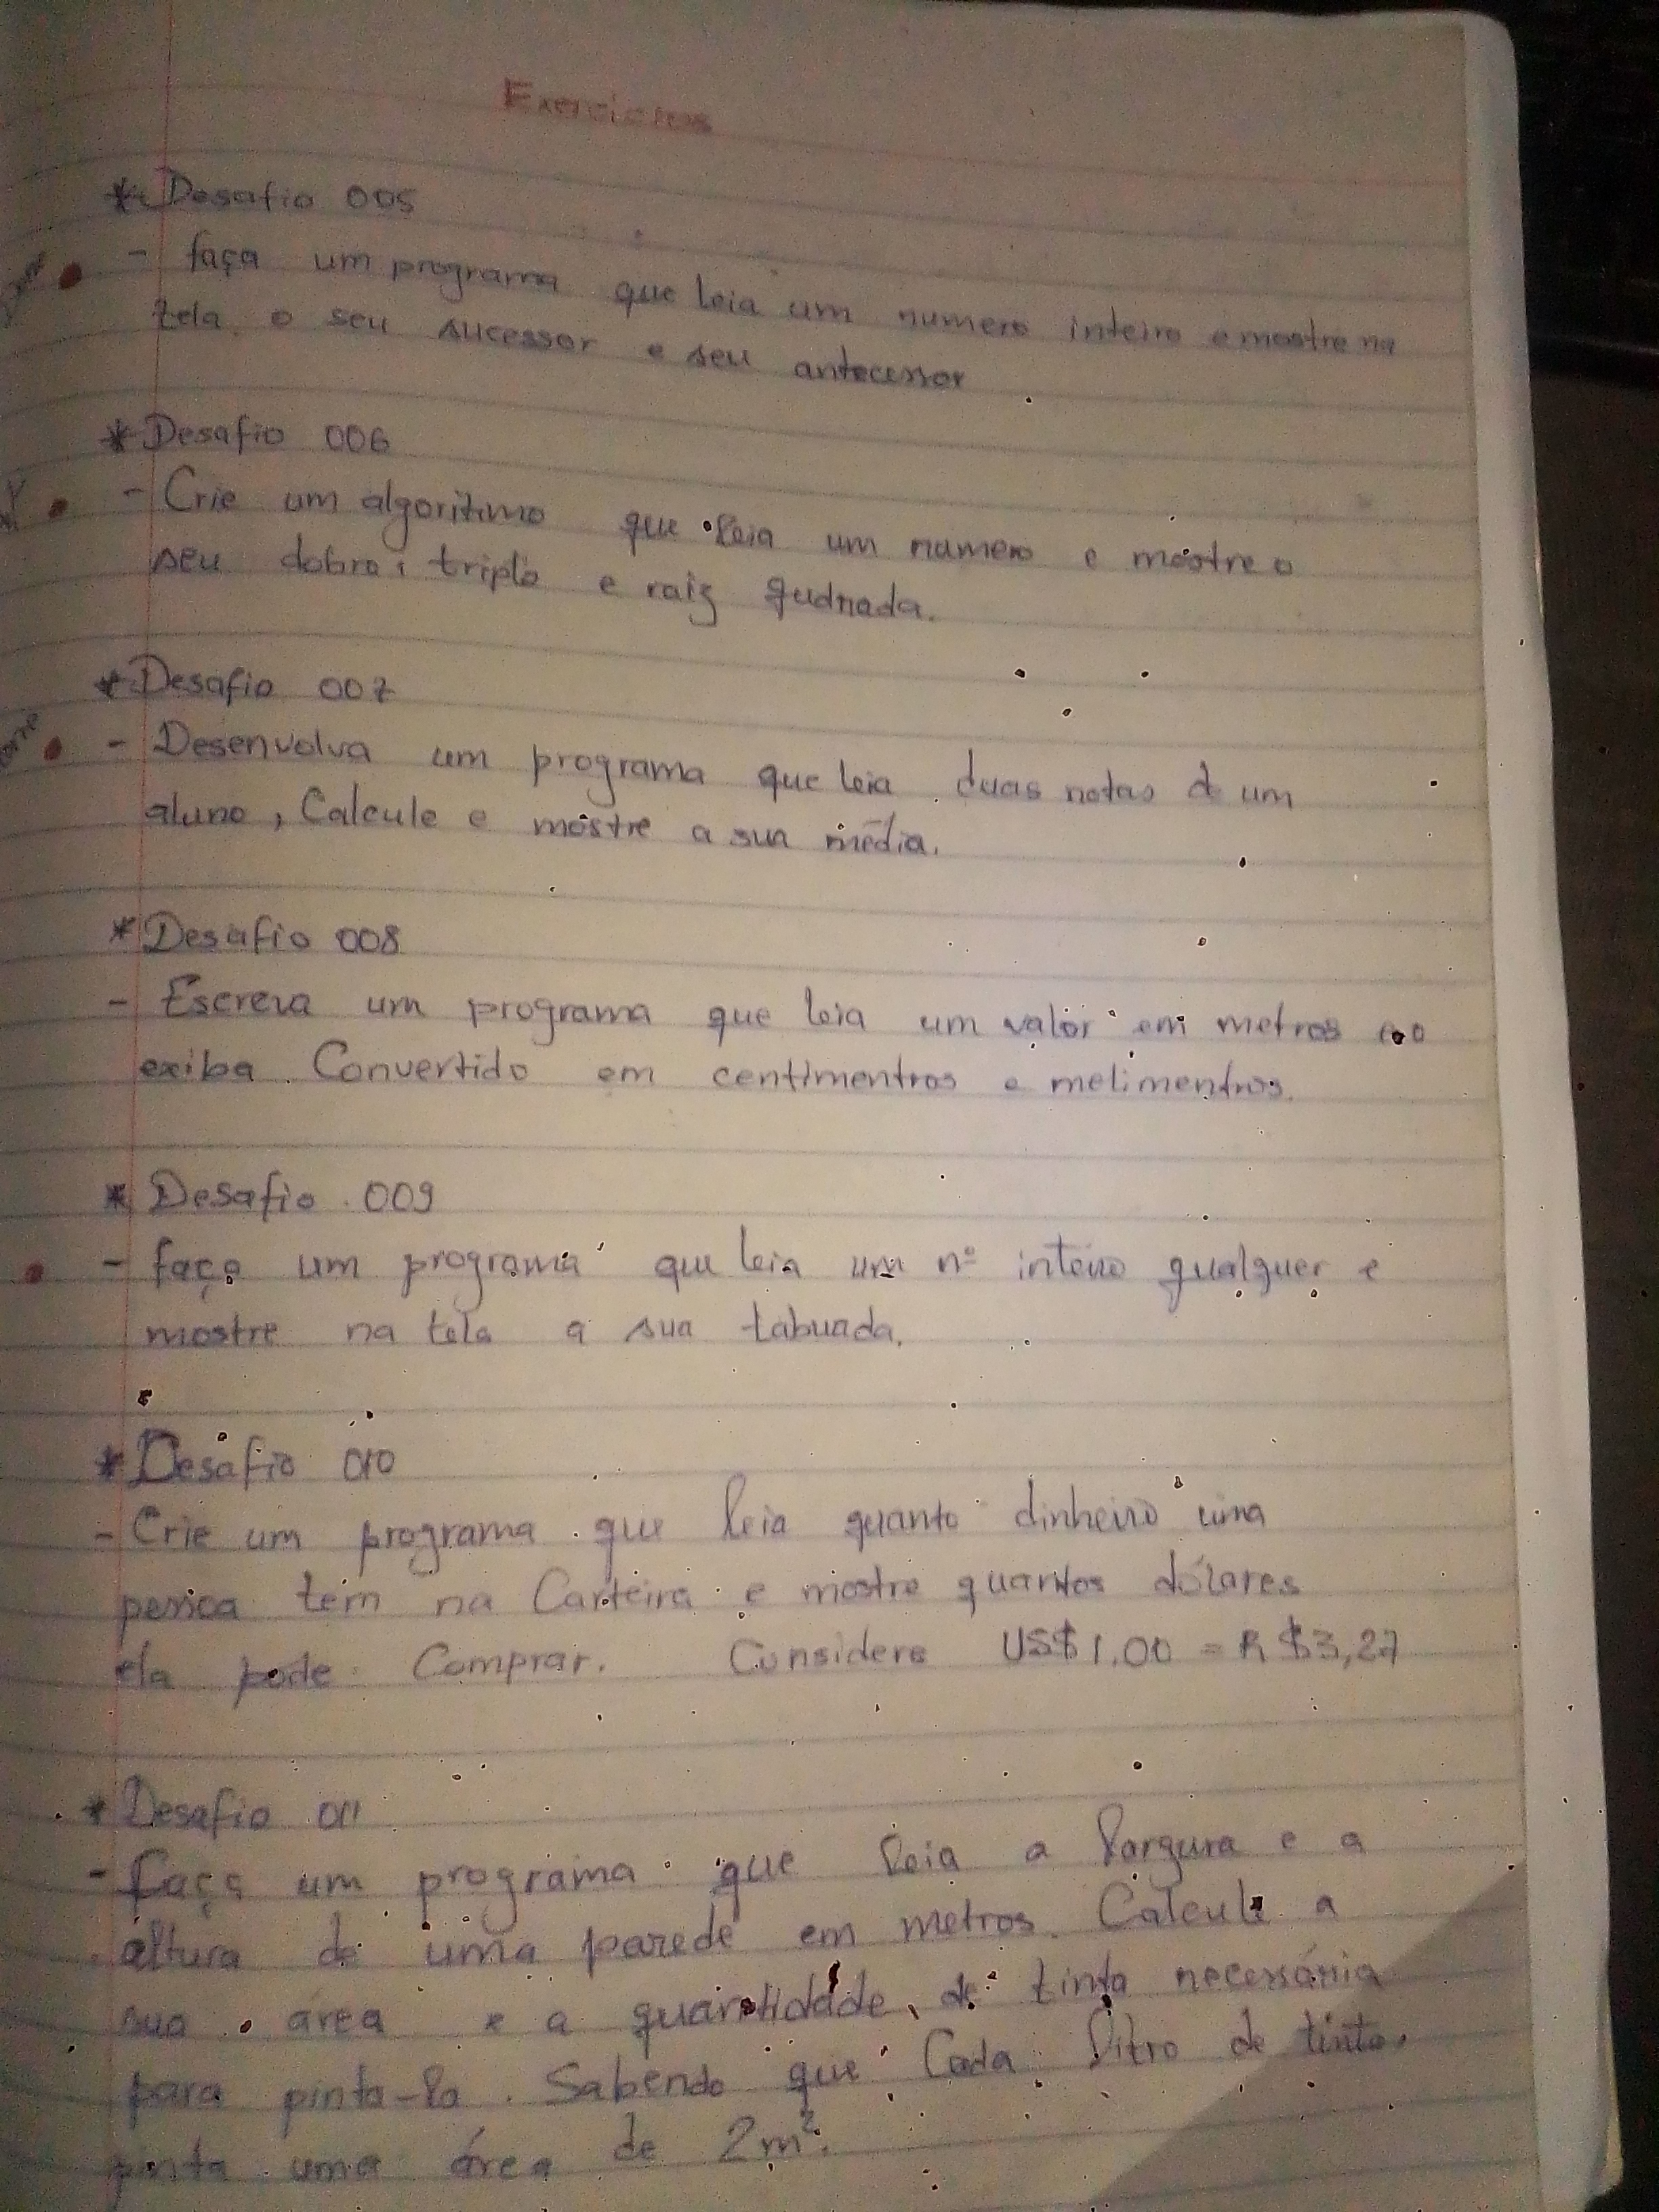 Exercicios
* Desafio 005
- faça um programa que leia um numero inteiro e mostre na
tela o seu sucessor e seu antecessor
* Desafio 006
- Crie um algoritimo que leia um numero e mostre o
seu dobro, triplo e raiz qudrada.
* Desafio 007
- Desenvolva um programa que leia duas notas de um
aluno, Calcule e mostre a sua média.
* Desafio 008
- Escreva um programa que leia um valor em metros e o
exiba Convertido em centimentros e melimentros.
* Desafio 009
- faça um programa que leia um nº inteiro qualquer e
mostre na tela a sua tabuada.
* Desafio 010
- Crie um programa que leia quanto dinheiro uma
pessoa tem na Carteira e mostre quantos dólares
ela pode Comprar. Considere US$1.00 = R$3,27
* Desafio 011
- Faça um programa que leia a largura e a
altura de uma parede em metros. Calcule a
sua área e a quantidade de tinta necessária
para pinta-la. Sabendo que Cada litro de tinta,
pinta uma área de 2m².